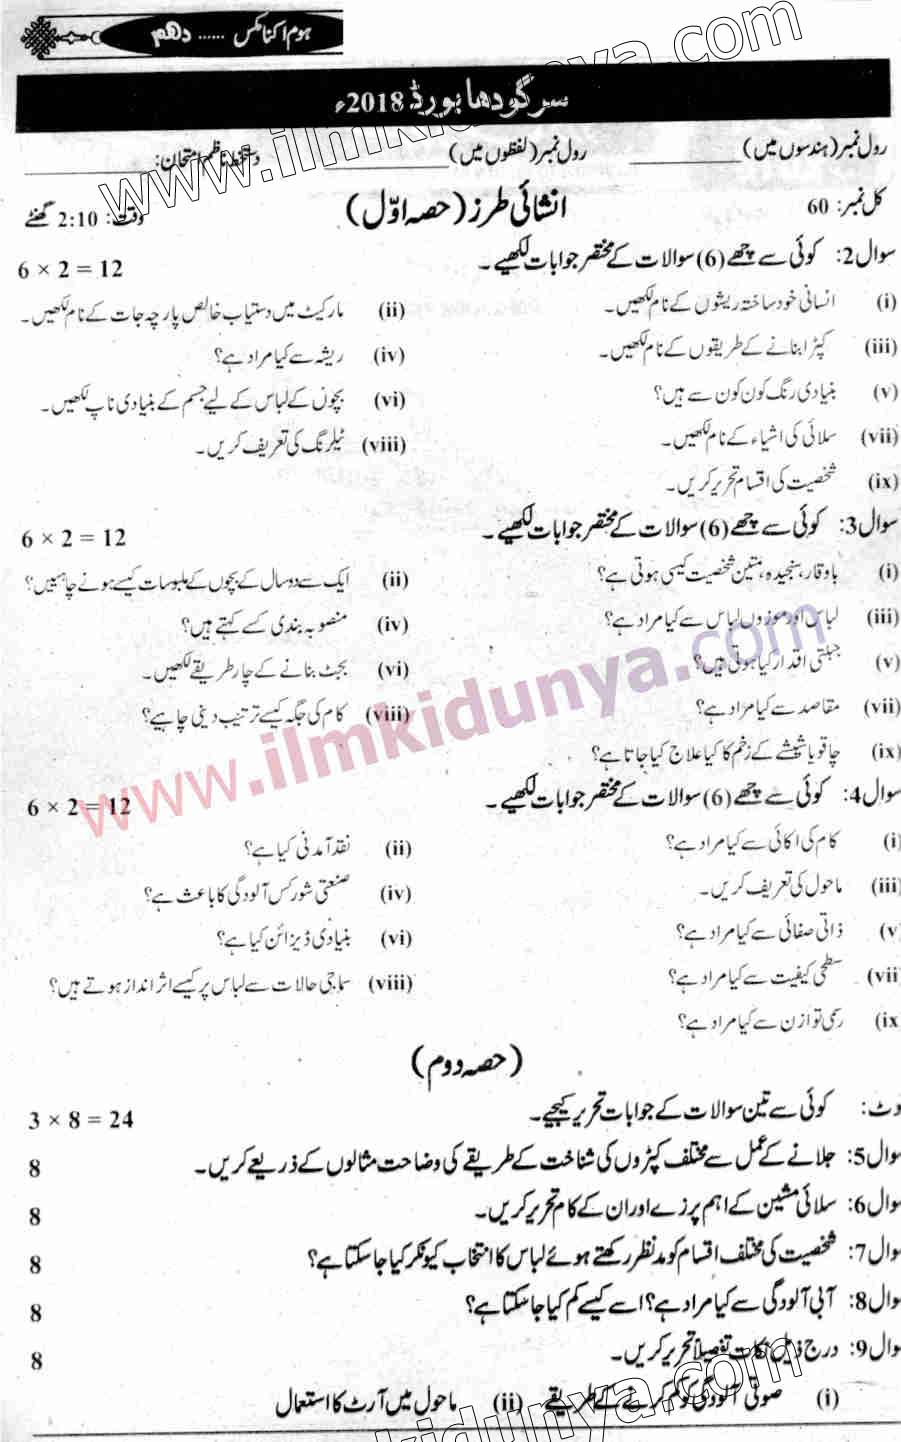 ہوم اکنامکس ...... دہم
سرگودھا بورڈ 2018ء
رول نمبر (ہندسوں میں) ____________ رول نمبر (لفظوں میں) ____________ دستخط ناظم امتحان: ____________
کل نمبر: 60 انشائی طرز (حصہ اوّل) وقت: 2:10 گھنٹے
سوال 2: کوئی سے چھے (6) سوالات کے مختصر جوابات لکھیے۔ 6 × 2 = 12
(i) انسانی خود ساختہ ریشوں کے نام لکھیں۔ (ii) مارکیٹ میں دستیاب خالص پارچہ جات کے نام لکھیں۔
(iii) کپڑا بنانے کے طریقوں کے نام لکھیں۔ (iv) ریشہ سے کیا مراد ہے؟
(v) بنیادی رنگ کون کون سے ہیں؟ (vi) بچوں کے لباس کے لیے جسم کے بنیادی ناپ لکھیں۔
(vii) سلائی کی اشیاء کے نام لکھیں۔ (viii) ٹیلرنگ کی تعریف کریں۔
(ix) شخصیت کی اقسام تحریر کریں۔
سوال 3: کوئی سے چھے (6) سوالات کے مختصر جوابات لکھیے۔ 6 × 2 = 12
(i) باوقار، سنجیدہ، متین شخصیت کیسی ہوتی ہے؟ (ii) ایک سے دو سال کے بچوں کے ملبوسات کیسے ہونے چاہییں؟
(iii) لباس اور موزوں لباس سے کیا مراد ہے؟ (iv) منصوبہ بندی کسے کہتے ہیں؟
(v) جبلتی اقدار کیا ہوتی ہیں؟ (vi) بجٹ بنانے کے چار طریقے لکھیں۔
(vii) مقاصد سے کیا مراد ہے؟ (viii) کام کی جگہ کیسے ترتیب دینی چاہیے؟
(ix) چاقو یا شیشے کے زخم کا کیا علاج کیا جاتا ہے؟
سوال 4: کوئی سے چھے (6) سوالات کے مختصر جوابات لکھیے۔ 6 × 2 = 12
(i) کام کی اکائی سے کیا مراد ہے؟ (ii) نقد آمدنی کیا ہے؟
(iii) ماحول کی تعریف کریں۔ (iv) صنعتی شور کس آلودگی کا باعث ہے؟
(v ذاتی صفائی سے کیا مراد ہے؟ (vi) بنیادی ڈیزائن کیا ہے؟
(vii سطحی کیفیت سے کیا مراد ہے؟ (viii) سماجی حالات سے لباس پر کیسے اثر انداز ہوتے ہیں؟
(ix رسمی توازن سے کیا مراد ہے؟
(حصہ دوم)
وٹ: کوئی سے تین سوالات کے جوابات تحریر کیجیے۔ 3 × 8 = 24
وال 5: جلانے کے عمل سے مختلف کپڑوں کی شناخت کے طریقے کی وضاحت مثالوں کے ذریعے کریں۔ 8
وال 6: سلائی مشین کے اہم پرزے اور ان کے کام تحریر کریں۔ 8
وال 7: شخصیت کی مختلف اقسام کو مدنظر رکھتے ہوئے لباس کا انتخاب کیونکر کیا جا سکتا ہے؟ 8
وال 8: آبی آلودگی سے کیا مراد ہے؟ اسے کیسے کم کیا جا سکتا ہے؟ 8
وال 9: درج ذیل نکات تفصیلاً تحریر کریں۔ 8
(i) صوتی آلودگی کو کم کرنے کے طریقے (ii) ماحول میں آرٹ کا استعمال
www.ilmkidunya.com
www.ilmkidunya.com
kidunya.com